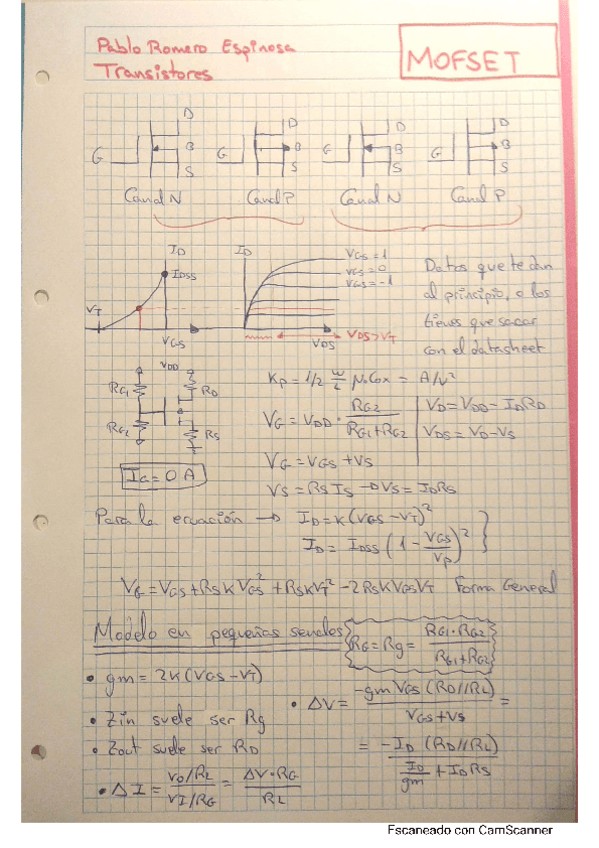 Pablo Romero Espinosa
Transistores
MOFSET
D D D D
G B G B G B G B
S S S S
Canal N Canal P Canal N Canal P
ID ID
IDSS
VGS=1
VGS=0
VGS=-1
VT
VGS
VDS
VDS>VT
Datos que te dan
al principio, o los
tienes que sacar
con el datasheet
VDD
RG1 RD
RG2 RS
IG=0 A
Kp = 1/2 W/L µ·Cox = A/V²
VG = VDD · RG2/(RG1+RG2)
VD=VDD-IDRD
VDS=VD-VS
VG=VGS+VS
VS=RS IS → VS=IDRS
Para la ecuación → ID=K(VGS-VT)²
ID= IDSS (1 - VGS/Vp)²
VG=VGS+RSKVGS²+RSKVT²-2RSKVGSVT Forma General
Modelo en pequeñas señales
RG=Rg= RG1·RG2/(RG1+RG2)
• gm = 2K(VGS-VT)
• ΔV= -gm VGS (RD//RL)/(VGS+VS) =
• Zin suele ser Rg
• Zout suele ser RD
= -ID (RD//RL)/(ID/gm + IDRS)
• ΔI = (VO/RL)/(VI/RG) = ΔV·RG/RL
Escaneado con CamScanner